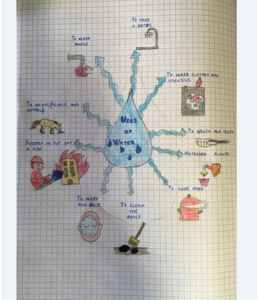 USES
OF
WATER
TO TAKE
A BATH
TO WASH
HANDS
TO WASH CLOTHES AND
UTENSILS
TO DRINK PEOPLE AND
ANIMALS
TO BRUSH OUR TEETH
FIREMEN TO PUT OUT
A FIRE
WATERING PLANTS
TO COOK FOOD
TO WASH
OUR FACE
TO CLEAN
THE